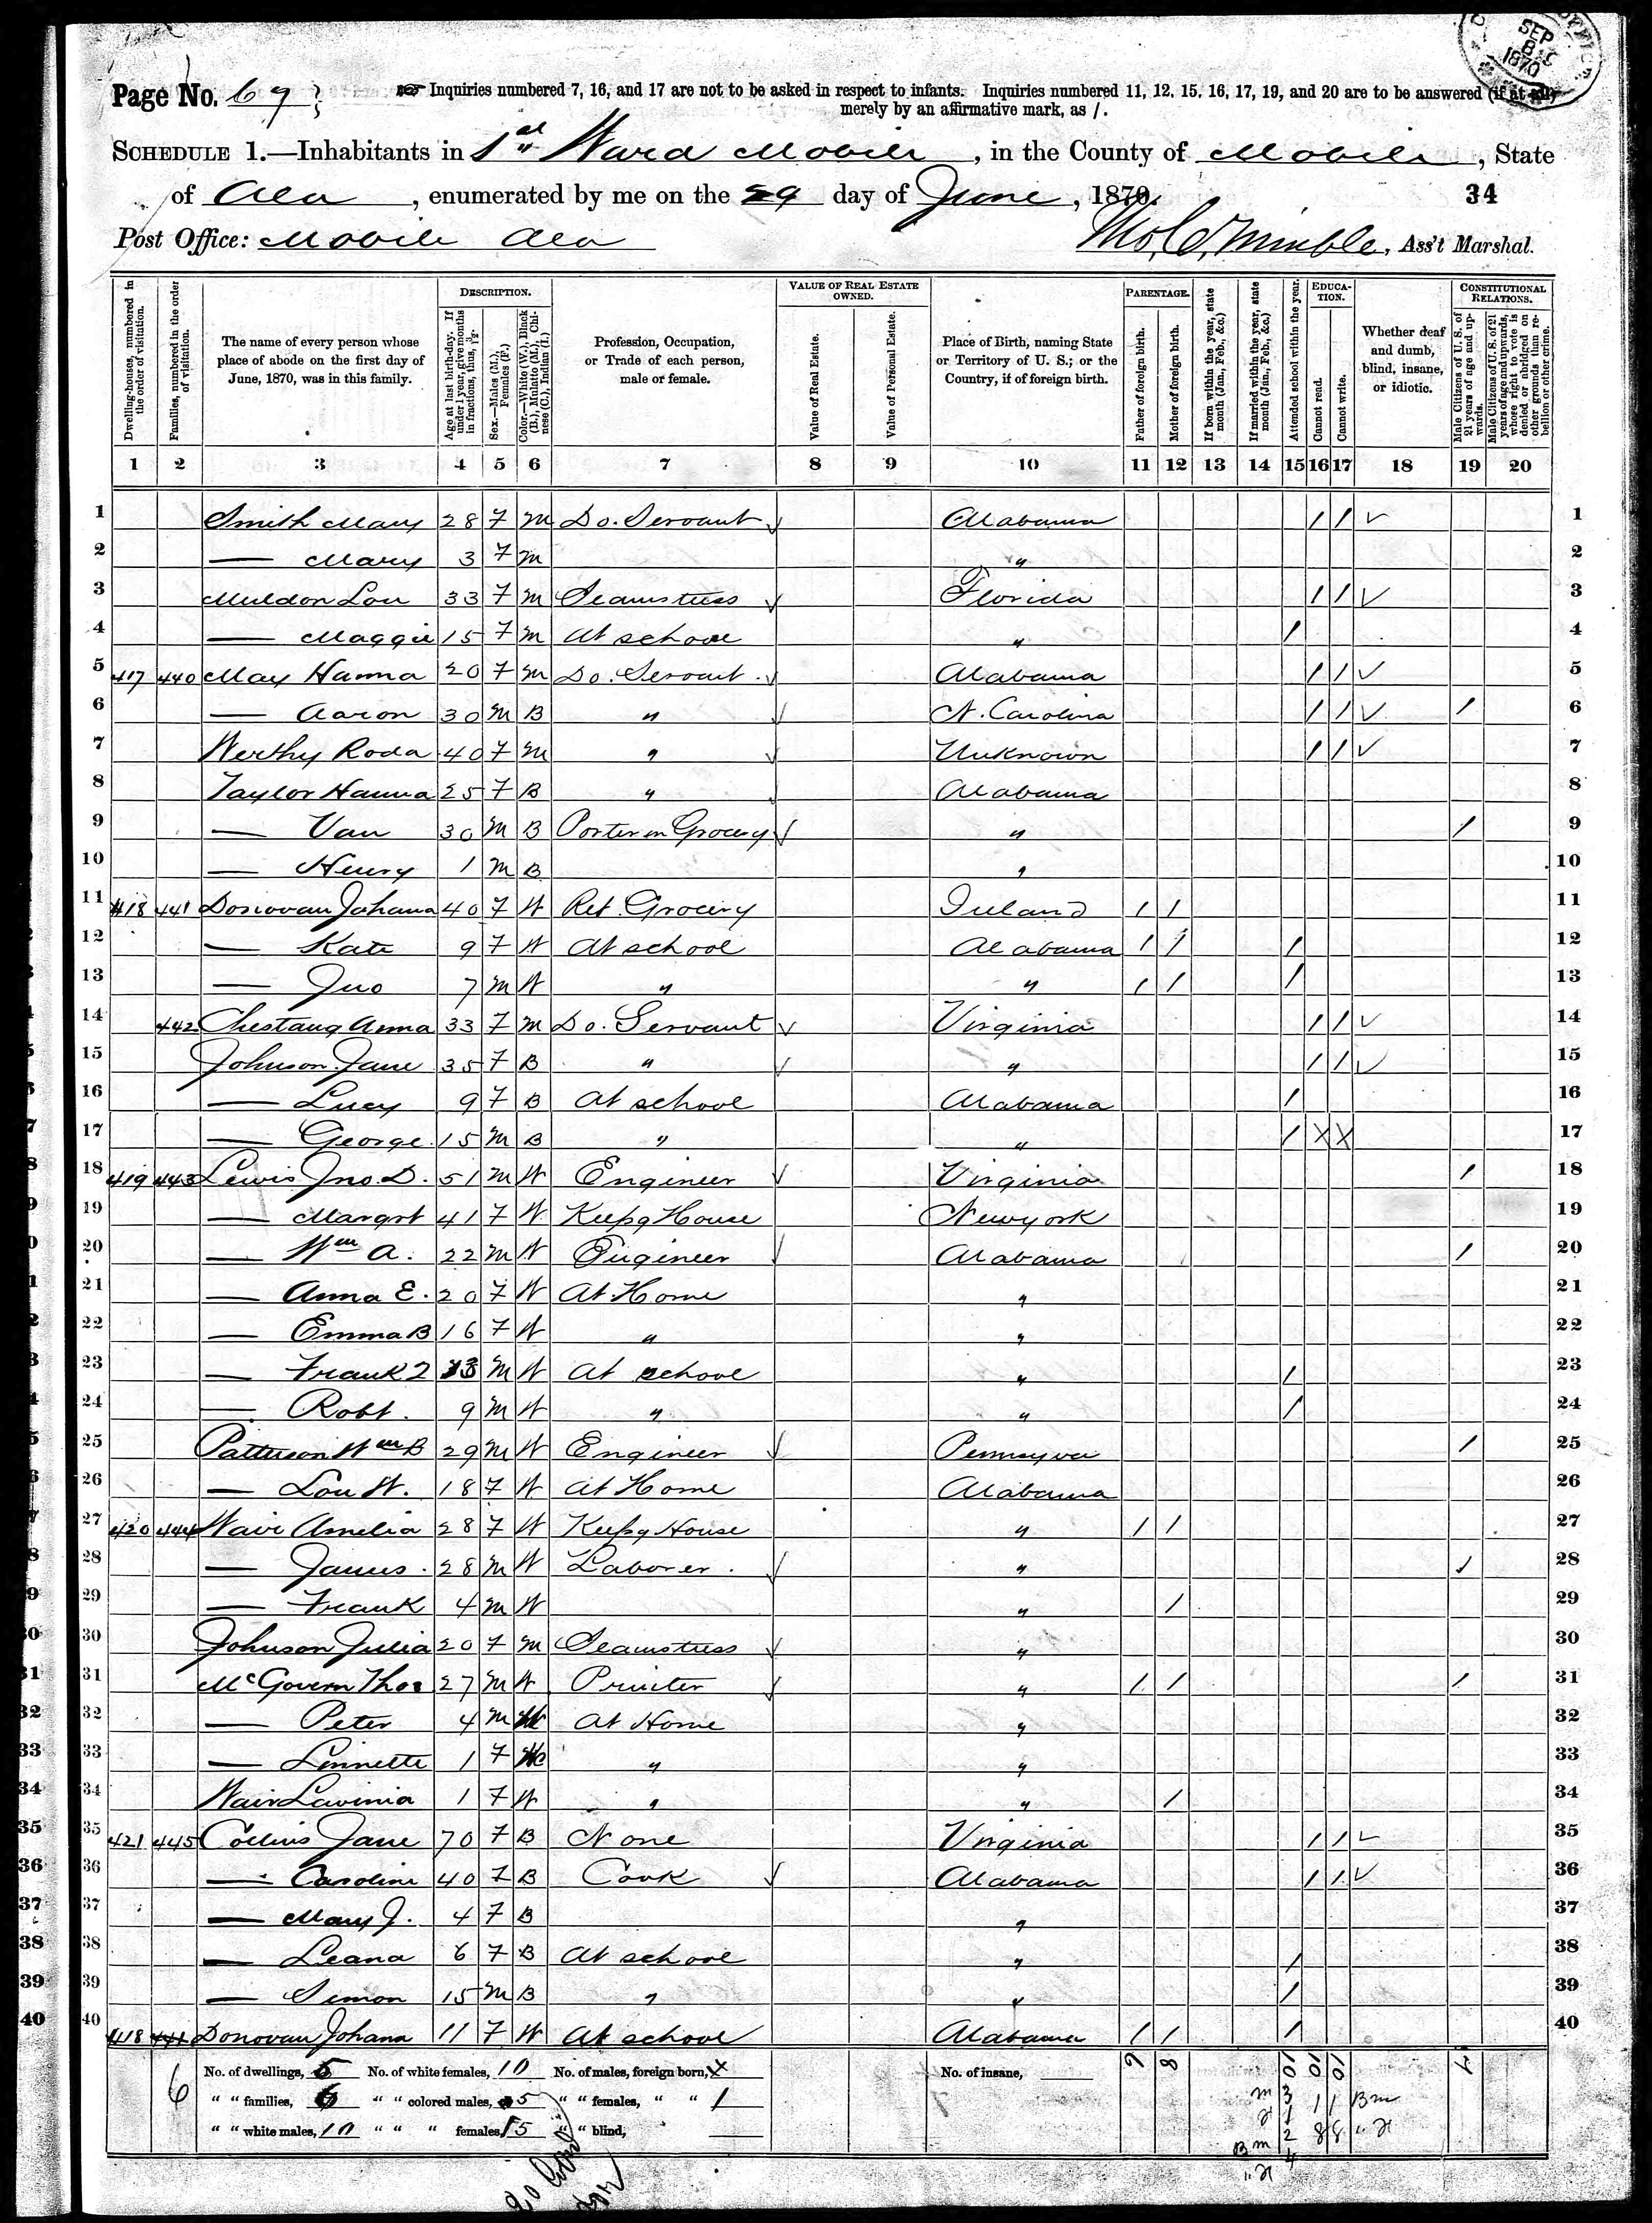 Page No. 67
Inquiries numbered 7, 16, and 17 are not to be asked in respect to infants. Inquiries numbered 11, 12, 15, 16, 17, 19, and 20 are to be answered (if at all)
merely by an affirmative mark, as /.
SEP 1870
SCHEDULE 1.—Inhabitants in 1st Ward Mobile, in the County of Mobile, State
of Ala, enumerated by me on the 29 day of June, 1870.
34
Post Office: Mobile Ala
Ass't Marshal.
Dwelling-houses, numbered in the order of visitation.
Families, numbered in the order of visitation.
The name of every person whose place of abode on the first day of June, 1870, was in this family.
DESCRIPTION.
Age at last birth-day. If under 1 year, give months in fractions, thus, 3/12.
Sex.—Males (M.), Females (F.)
Color.—White (W.), Black (B.), Mulatto (M.), Chinese (C.), Indian (I.)
Profession, Occupation, or Trade of each person, male or female.
VALUE OF REAL ESTATE OWNED.
Value of Real Estate.
Value of Personal Estate.
Place of Birth, naming State or Territory of U. S.; or the Country, if of foreign birth.
PARENTAGE.
Father of foreign birth.
Mother of foreign birth.
If born within the year, state month (Jan., Feb., &c.)
If married within the year, state month (Jan., Feb., &c.)
Attended school within the year.
EDUCATION.
Cannot read.
Cannot write.
Whether deaf and dumb, blind, insane, or idiotic.
CONSTITUTIONAL RELATIONS.
Male Citizens of U. S. of 21 years of age and upwards.
Male Citizens of U. S. of 21 years of age and upwards, whose right to vote is denied or abridged on other grounds than rebellion or other crime.
1 2 3 4 5 6 7 8 9 10 11 12 13 14 15 16 17 18 19 20
1 Smith Mary 28 F M Do. Servant Alabama / / 1
2 — Mary 3 F M " 2
3 Muldon Lou 33 F M Seamstress Florida / / 3
4 — Maggie 15 F M At school " / 4
5 417 440 May Hanna 20 F M Do. Servant Alabama / / 5
6 — Aaron 30 M B " N. Carolina / / / 6
7 Werthy Roda 40 F M " Unknown / / 7
8 Taylor Hanna 25 F B " Alabama 8
9 — Van 30 M B Porter in Grocery " / 9
10 — Henry 1 M B " 10
11 418 441 Donovan Johana 40 F W Ret. Grocery Ireland / / 11
12 — Kate 9 F W At school Alabama / / / 12
13 — Jno 7 M W " " / / / 13
14 442 Chestang Anna 33 F M Do. Servant Virginia / / 14
15 Johnson Jane 35 F B " " / / 15
16 — Lucy 9 F B At school Alabama / 16
17 — George 15 M B " " / X X 17
18 419 443 Lewis Jno. D. 51 M W Engineer Virginia / 18
19 — Margrt 41 F W Keepg House Newyork 19
20 — Wm A. 22 M W Engineer Alabama / 20
21 — Anna E. 20 F W At Home " 21
22 — Emma B 16 F W " " 22
23 — Frank 13 M W At school " / 23
24 — Robt. 9 M W " " / 24
25 Patterson Wm B 29 M W Engineer Pennsyva / 25
26 — Lou W. 18 F W At Home Alabama 26
27 420 444 Wair Amelia 28 F W Keepg House " / / 27
28 — James 28 M W Laborer " / 28
29 — Frank 4 M W " / 29
30 Johnson Julia 20 F M Seamstress " 30
31 McGovern Thos 27 M W Printer " / / / 31
32 — Peter 4 M At Home " 32
33 — Linnette 1 F " " 33
34 Wair Lavinia 1 F W " " / 34
35 421 445 Collins Jane 70 F B None Virginia / / 35
36 — Caroline 40 F B Cook Alabama / / 36
37 — Mary J. 4 F B " 37
38 — Leana 6 F B At school " / 38
39 — Simon 15 M B " " / 39
40 418 441 Donovan Johana 11 F W At school Alabama / / / 40
6 No. of dwellings, 5 No. of white females, 10 No. of males, foreign born, No. of insane, 6 8 10 10 10 7
" " families, 6 " " colored males, 5 " " females, " " 1
" " white males, 10 " " " females, 15 " " blind,